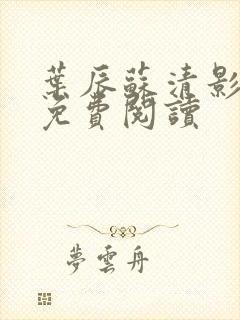 葉辰蘇清影
免費閱讀
夢雲舟